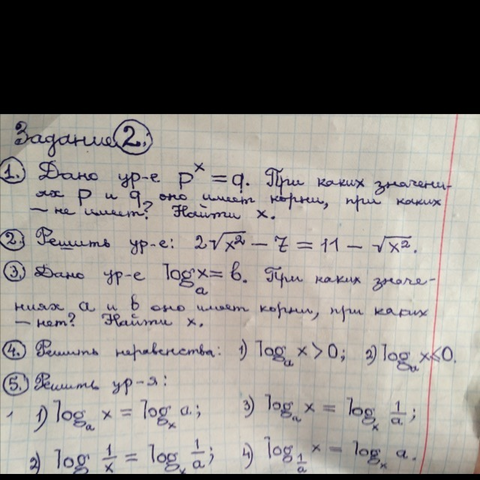 Задание 2.
1. Дано ур-е p^x = q. При каких значени-
ях p и q оно имеет корни, при каких
– не имеет? Найти x.
2. Решить ур-е: 2√x² – 7 = 11 – √x².
3. Дано ур-е logₐx = b. При каких значе-
ниях a и b оно имеет корни, при каких
– нет? Найти x.
4. Решить неравенства: 1) logₐ x > 0; 2) logₐ x ≤ 0.
5. Решить ур-я:
1) logₐ x = logₓ a; 3) logₐ x = logₓ 1/a;
2) logₐ 1/x = logₓ 1/a; 4) log_{1/a} x = logₓ a.